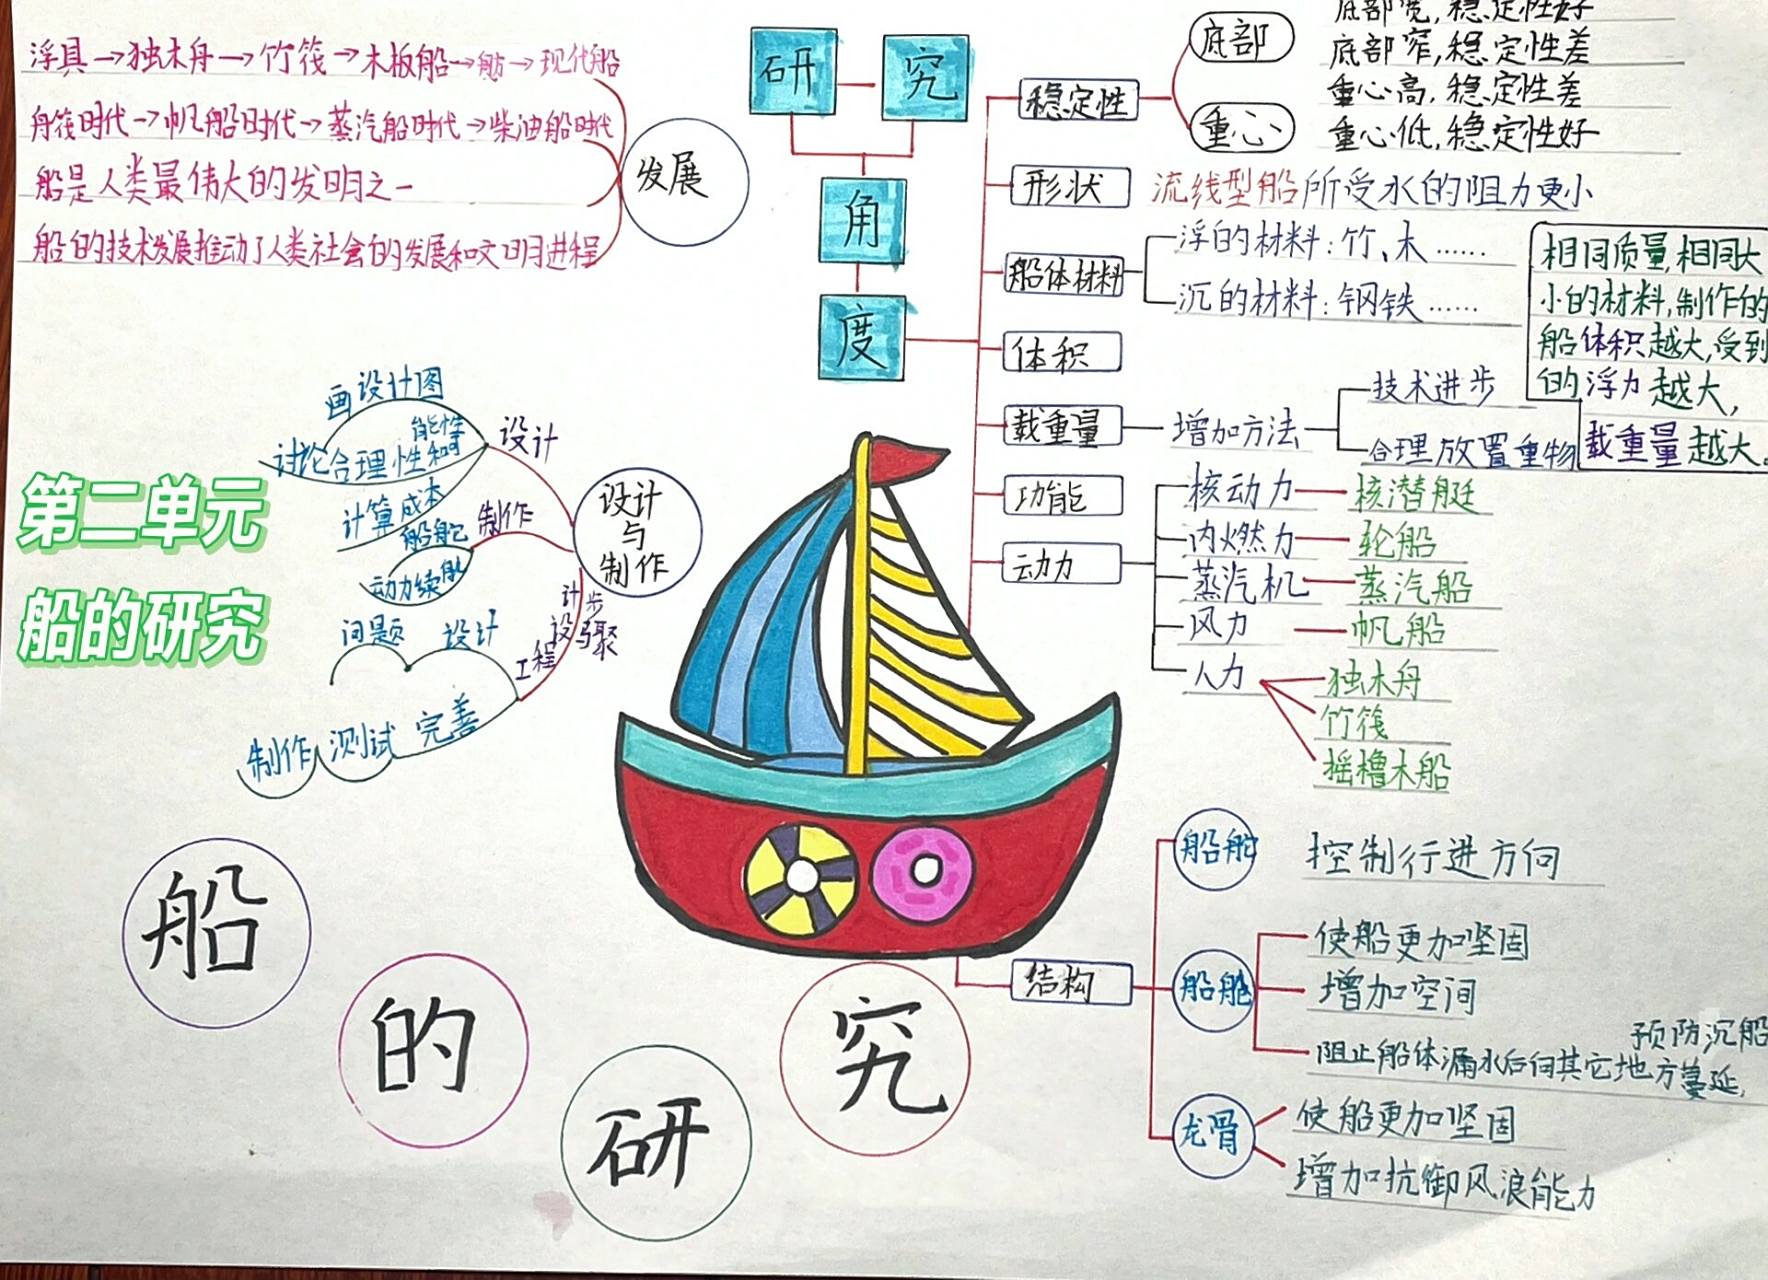 浮具→独木舟→竹筏→木板船→舫→现代船
舟筏时代→帆船时代→蒸汽船时代→柴油船时代
船是人类最伟大的发明之一
船的技术发展推动了人类社会的发展和文明进程
发展
研究
角
度
稳定性
底部
底部宽,稳定性好
底部窄,稳定性差
重心
重心高,稳定性差
重心低,稳定性好
形状
流线型船所受水的阻力更小
船体材料
浮的材料:竹、木……
沉的材料:钢铁……
体积
相同质量,相同大
小的材料,制作的
船体积越大,受到
的浮力越大,
载重量越大。
载重量
增加方法
技术进步
合理放置重物
功能
动力
核动力—核潜艇
内燃力—轮船
蒸汽机—蒸汽船
风力—帆船
人力
独木舟
竹筏
摇橹木船
设计
与
制作
设计
画设计图
讨论合理性和可
能性
计算成本
制作
船舵
动力续航
工程设计步骤
问题
设计
制作 测试 完善
第二单元
船的研究
结构
船舵
控制行进方向
船舱
使船更加坚固
增加空间
阻止船体漏水后向其它地方蔓延,
预防沉船
龙骨
使船更加坚固
增加抗御风浪能力
船
的
研
究